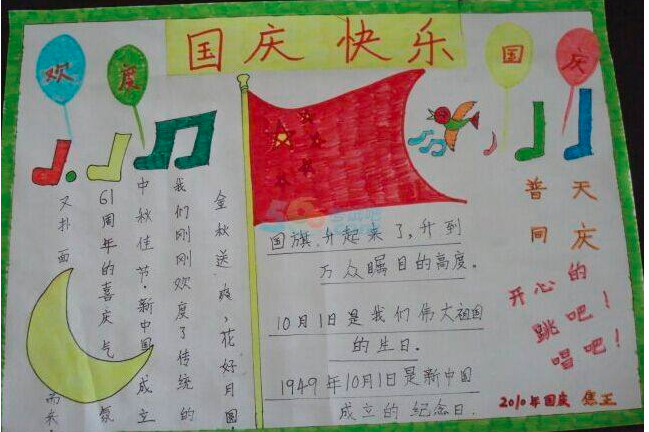 国庆快乐
欢度国庆
金秋送爽,花好月圆
我们刚刚欢度了传统的
中秋佳节·新中国成立
61周年的喜庆气氛
又扑面而来
国旗升起来了,升到
万众瞩目的高度。
10月1日是我们伟大祖国
的生日.
1949年10月1日是新中国
成立的纪念日.
普天
同庆
开心的
跳吧!
唱吧!
2010年国庆